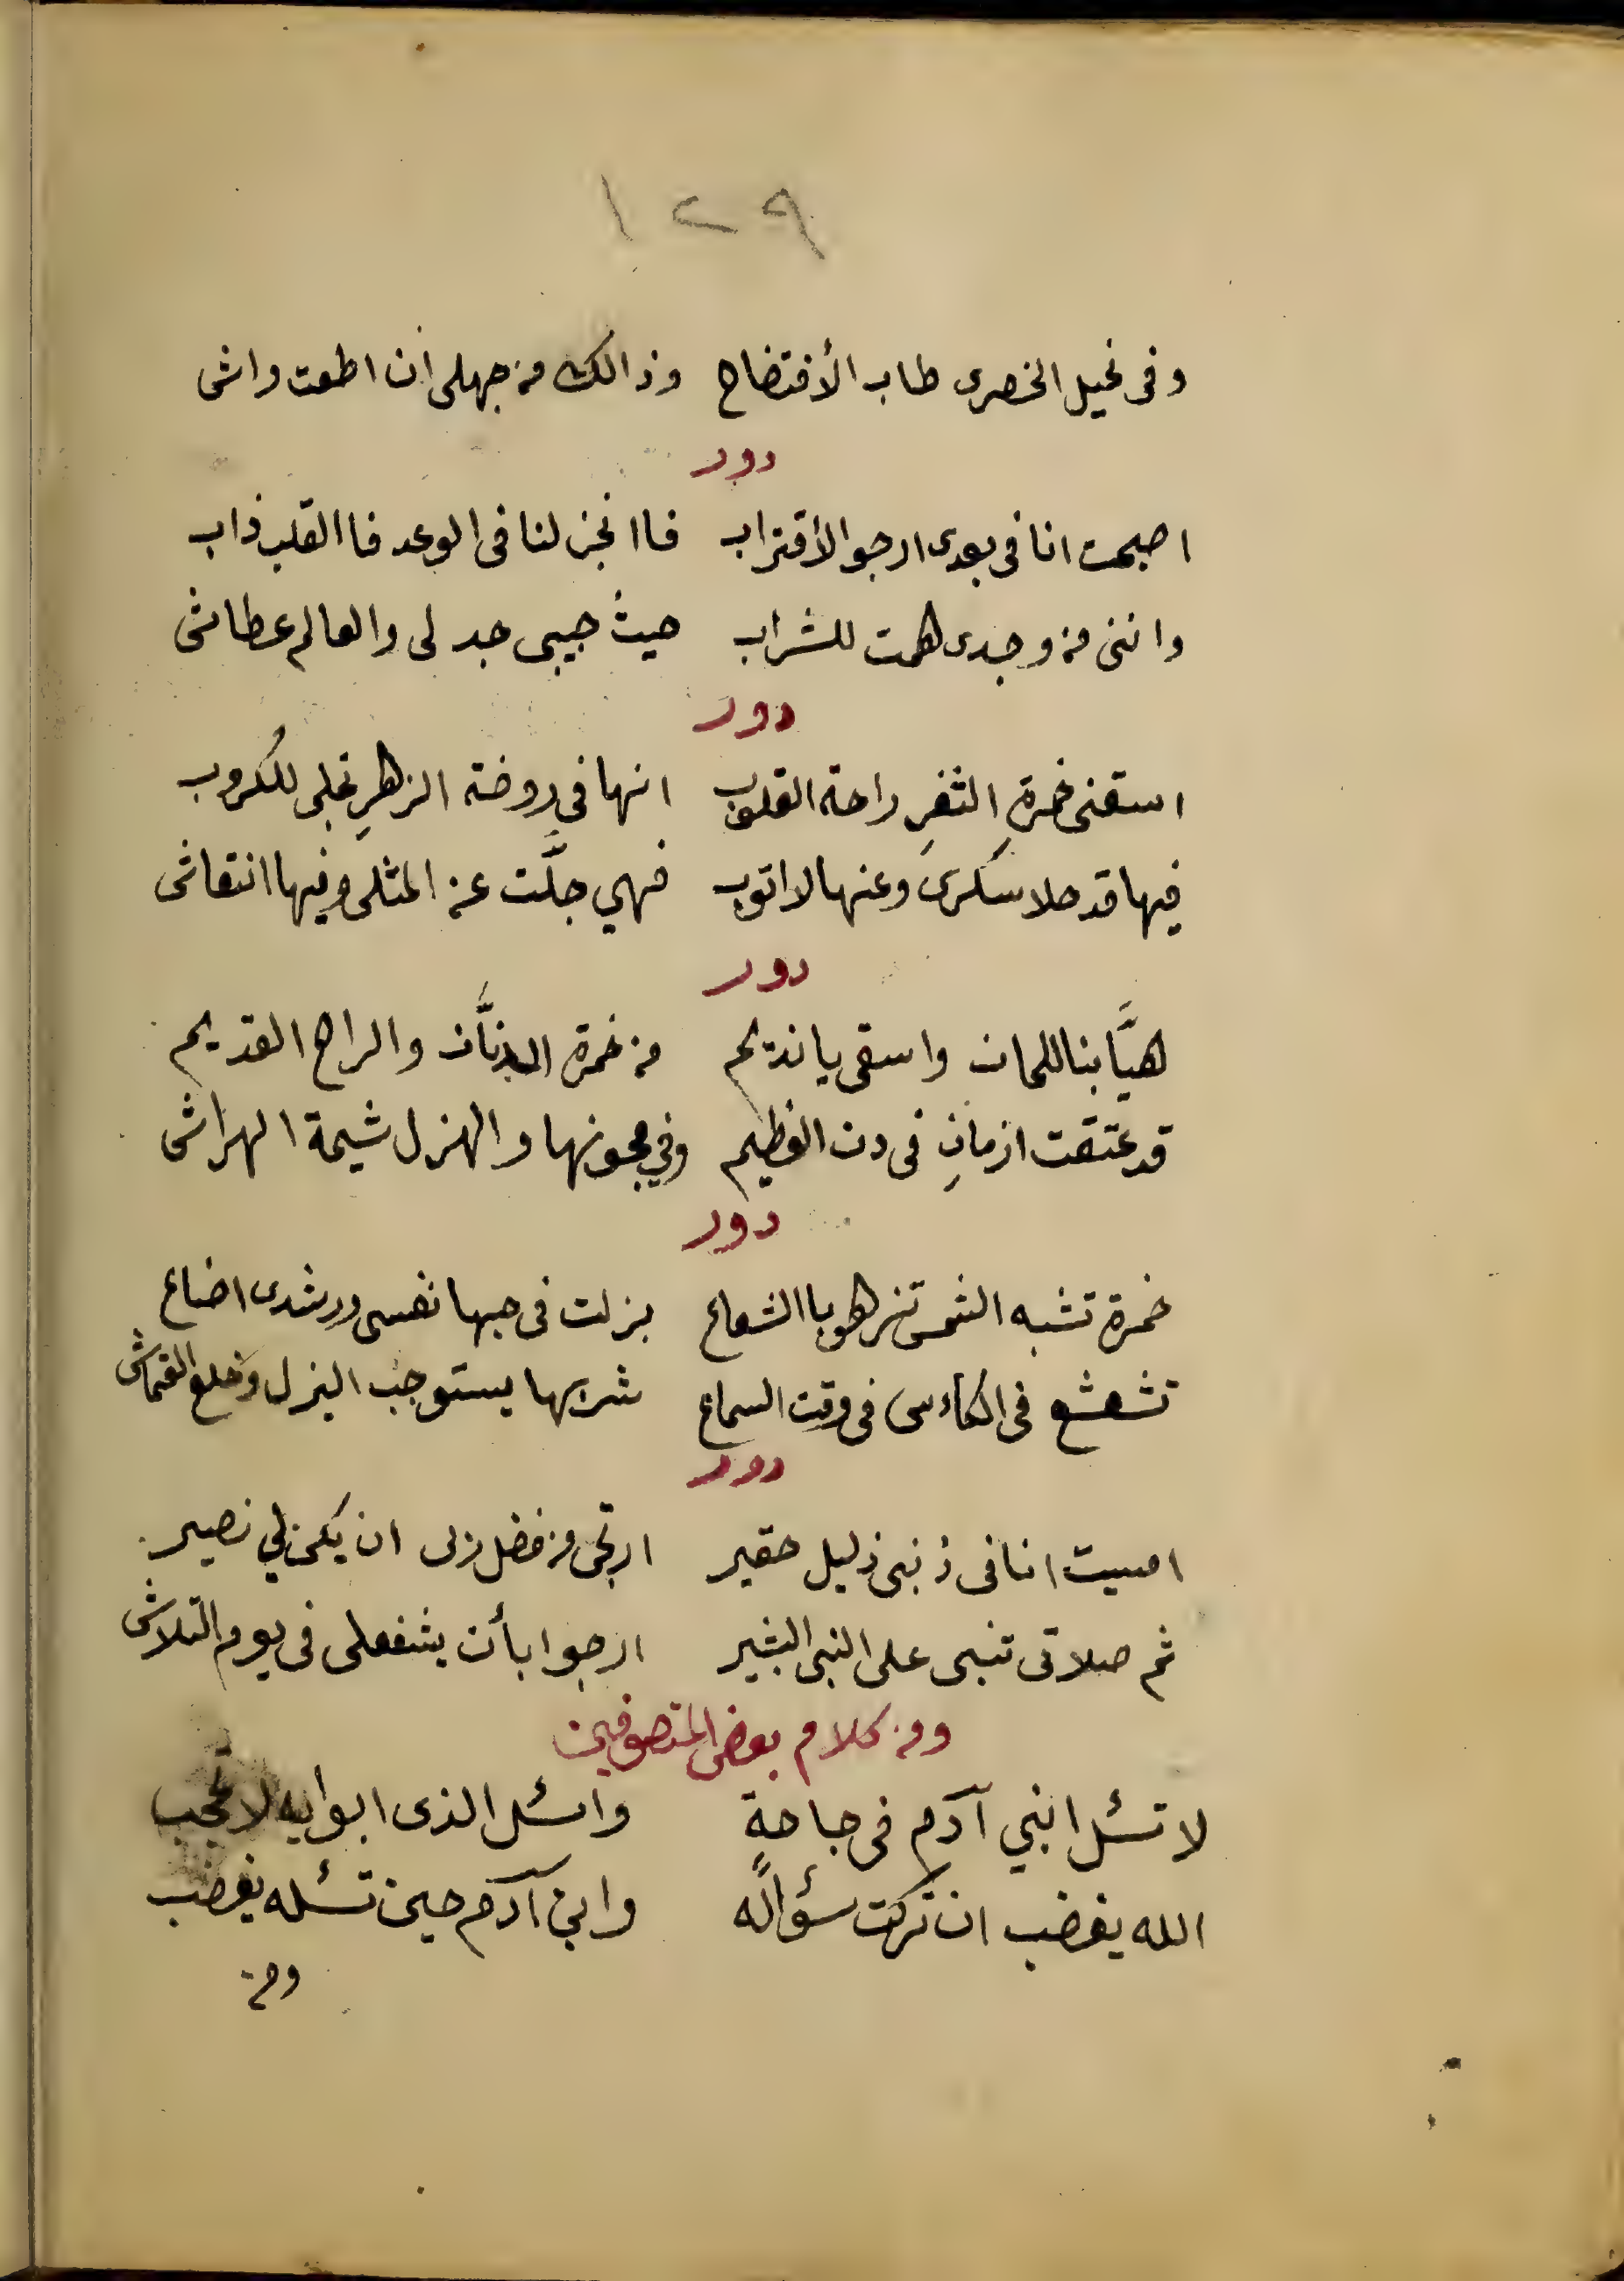 ١٢٩
وفى نحيل الخصرى طاب الأفتضاح وذالك من جهلى ان اطعت واشى
دور
اصبحت انا فى بعدى ارجو الأقتراب فاانجز لنا فى الوعد فاالقلب ذاب
واننى من وجدى همت للشراب حيث حبيبى جد لى والعالم عطاشى
دور
استقنى خمرةِ الثغرِ راحة القلوب انها فى روضة الزهرِ تجلى للكروب
فيها قد حلا سكرى وعنها لا اتوب فهي جلَّت عن المثلى وفيها انتقاشى
دور
هيَّا بنا للحان واسقى يا نديم من خمرة الدنَّان والراح القديم
قد عتقت ازمانِ فى دن الفطيم وفي مجونها والهزل شيمة الهراشى
دور
خمرة تشبه الشمس تزهو باالشعاع بزلت فى حبها نفسى ورشدى اضاع
تشعشع فى الكاءس فى وقت السماع شربها يستوجب البزل وخلع القماش
دور
امسيت انا فى ذنبى ذليل حقير ارتجى من فضل ربى ان يكن لي نصير
ثم صلاتى تنبى على النبى البشير ارجوا بأن يشفعلى فى يوم التلاشى
ومن كلام بعض المتصوفين
لا تسئل ابني آدم فى حاجةٍ واسئل الذى ابوابه لا تحجب
الله يغضب ان تركت سؤالَه وابن آدم حين تسئله يغضب
ومن